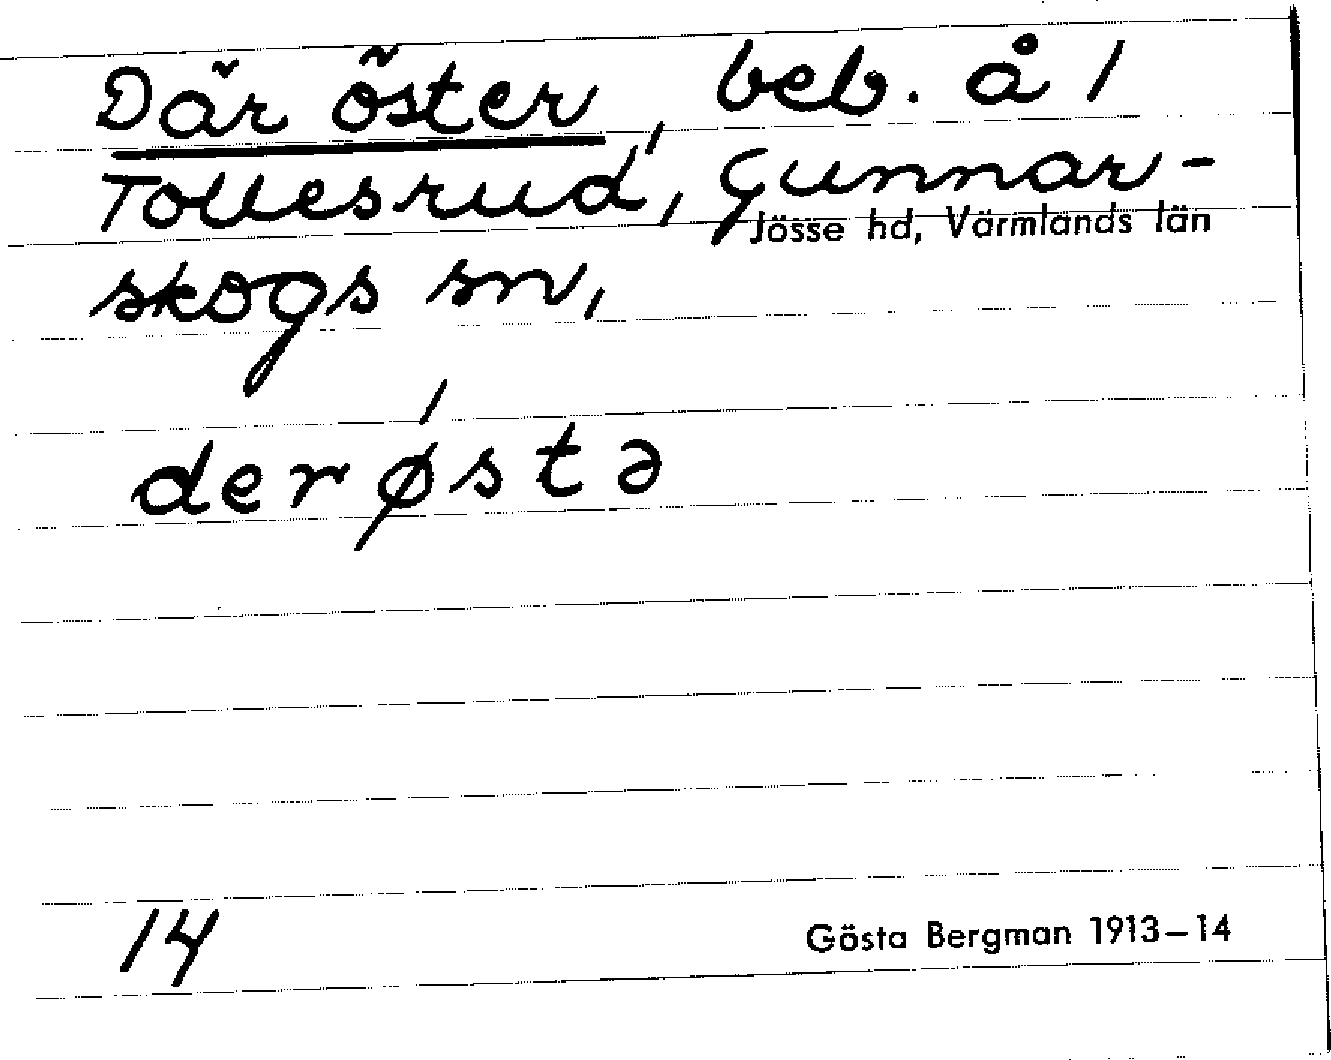 Där öster, beb. å 1
Tollesrud, Gunnar-
Jösse hd, Värmlands län
skogs sn,
derǿstə
14
Gösta Bergman 1913–14